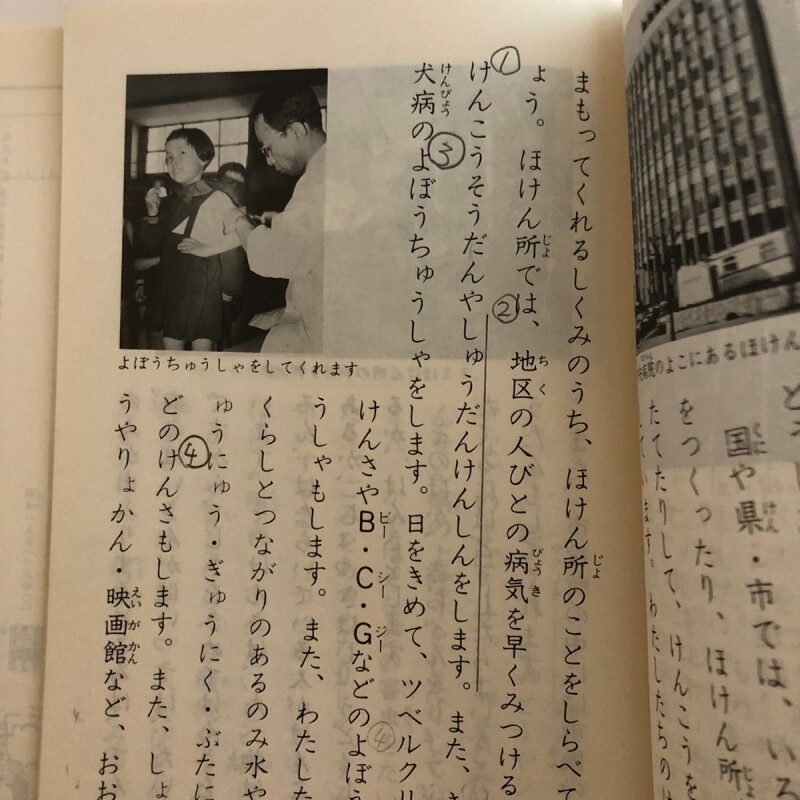 病院のよこにあるほけん
国や県・市では、いろ
をつくったり、ほけん所
たてたりして、けんこうを
ています。わたしたちの
まもってくれるしくみのうち、ほけん所のことをしらべて
ょう。ほけん所では、地区の人びとの病気を早くみつける
①
②
けんこうそうだんやしゅうだんけんしんをします。また、
③
犬病のよぼうちゅうしゃをします。日をきめて、ツベルクリ
よぼうちゅうしゃをしてくれます
けんさやB・C・Gなどのよぼう
④
うしゃもします。また、わたした
くらしとつながりのあるのみ水や
ゅうにゅう・ぎゅうにく・ぶたに
④
どのけんさもします。また、しょ
うやりょかん・映画館など、おお